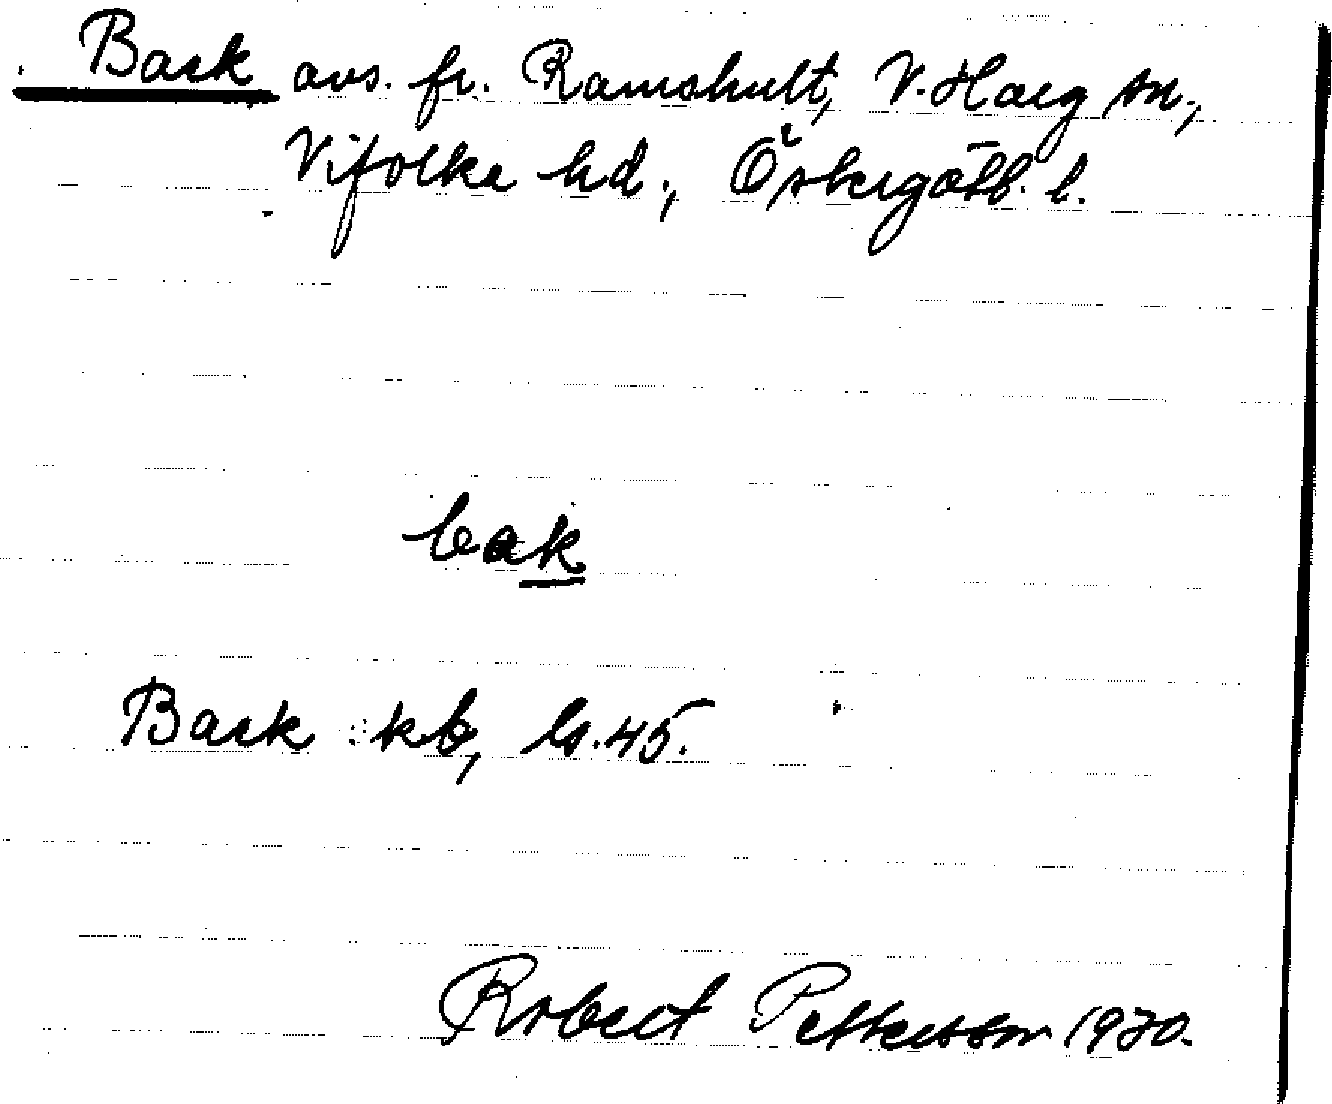 Back avs. fr. Ramshult, V. Harg sn.,
Vifolka hd., Östergötl. l.
bak
Back kb, ls. 45.
Robert Pettersson 1930.